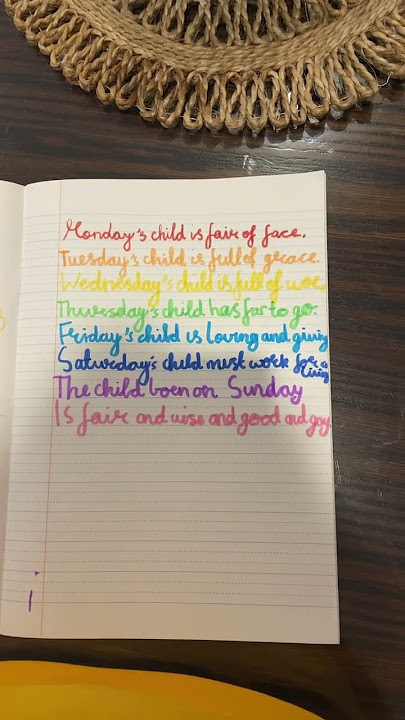 Monday's child is fair of face.
Tuesday's child is full of grace.
Wednesday's child is full of woe
Thursday's child has far to go.
Friday's child is loving and giving
Saturday's child must work for a living
The child born on Sunday
Is fair and wise and good and gay.